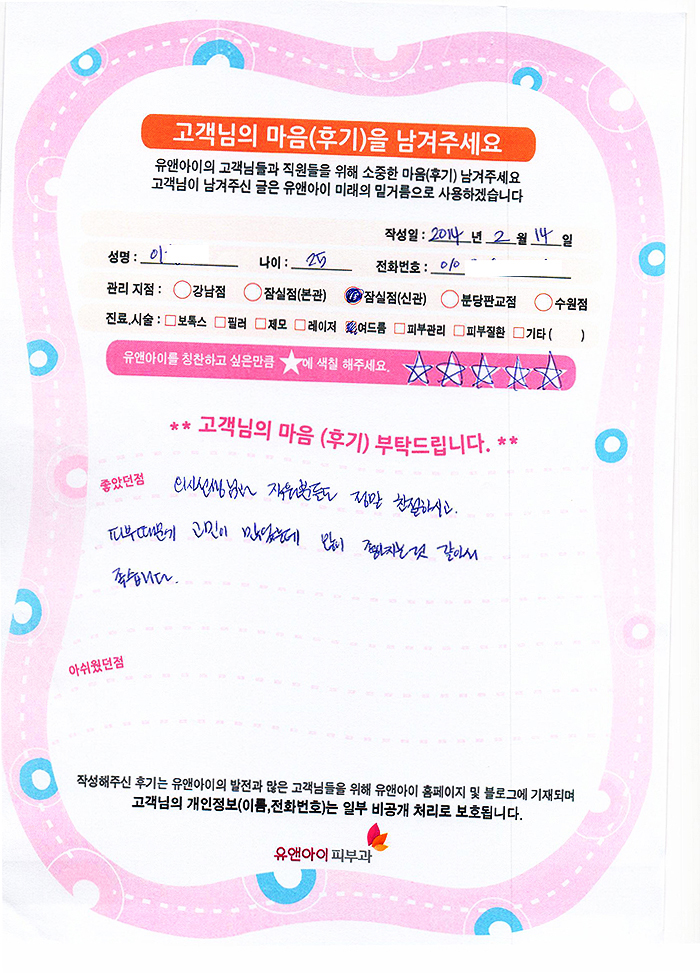 고객님의 마음(후기)을 남겨주세요
유앤아이의 고객님들과 직원들을 위해 소중한 마음(후기) 남겨주세요
고객님이 남겨주신 글은 유앤아이 미래의 밑거름으로 사용하겠습니다
작성일 : 2014 년 2 월 14 일
성명 : 이 나이 : 25 전화번호 : 010
관리 지점 : 강남점 잠실점(본관) 잠실점(신관) 분당판교점 수원점
진료,시술 : 보톡스 필러 제모 레이저 여드름 피부관리 피부질환 기타 ( )
유앤아이를 칭찬하고 싶은만큼 ★에 색칠 해주세요.
** 고객님의 마음 (후기) 부탁드립니다. **
좋았던점 의사선생님과 직원분들도 정말 친절하시고.
피부때문에 고민이 많았는데 많이 좋아지는것 같아서
좋습니다.
아쉬웠던점
작성해주신 후기는 유앤아이의 발전과 많은 고객님들을 위해 유앤아이 홈페이지 및 블로그에 기재되며
고객님의 개인정보(이름,전화번호)는 일부 비공개 처리로 보호됩니다.
유앤아이 피부과